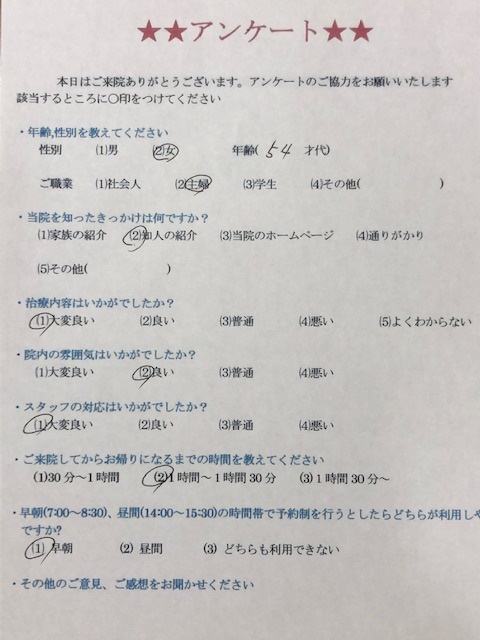 ★★アンケート★★
本日はご来院ありがとうございます。アンケートのご協力をお願いいたします
該当するところに○印をつけてください
・年齢,性別を教えてください
性別 (1)男 (2)女 年齢( 54 才代)
ご職業 (1)社会人 (2)主婦 (3)学生 (4)その他( )
・当院を知ったきっかけは何ですか?
(1)家族の紹介 (2)知人の紹介 (3)当院のホームページ (4)通りがかり
(5)その他( )
・治療内容はいかがでしたか?
(1)大変良い (2)良い (3)普通 (4)悪い (5)よくわからない
・院内の雰囲気はいかがでしたか?
(1)大変良い (2)良い (3)普通 (4)悪い
・スタッフの対応はいかがでしたか?
(1)大変良い (2)良い (3)普通 (4)悪い
・ご来院してからお帰りになるまでの時間を教えてください
(1)30分~1時間 (2)1時間~1時間30分 (3)1時間30分~
・早朝(7:00~8:30)、昼間(14:00~15:30)の時間帯で予約制を行うとしたらどちらが利用しや
ですか?
(1) 早朝 (2) 昼間 (3) どちらも利用できない
・その他のご意見、ご感想をお聞かせください